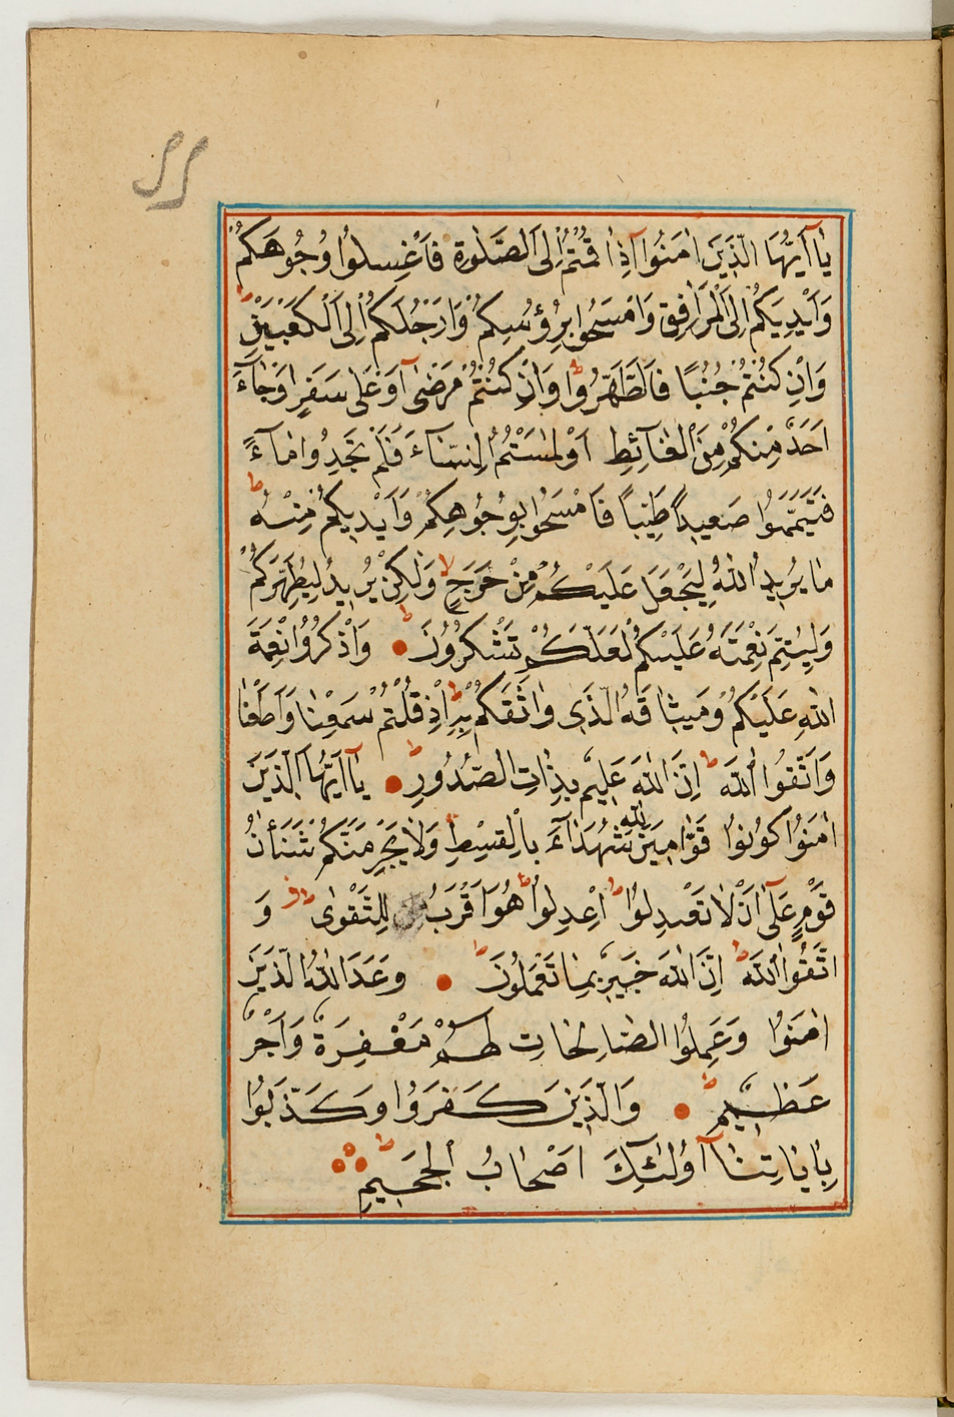 يَا أَيُّهَا الَّذِينَ اٰمَنُوا اِذَا قُمْتُمْ اِلَى الصَّلٰوةِ فَاغْسِلُوا وُجُوهَكُمْ
وَاَيْدِيَكُمْ اِلَى الْمَرَافِقِ وَامْسَحُوا بِرُؤُسِكُمْ وَاَرْجُلَكُمْ اِلَى الْكَعْبَيْنِ ط
وَاِنْ كُنْتُمْ جُنُبًا فَاطَّهَّرُوا ط وَاِنْ كُنْتُمْ مَرْضٰى اَوْ عَلٰى سَفَرٍ اَوْ جَاءَ
اَحَدٌ مِنْكُمْ مِنَ الْغَائِطِ اَوْ لٰمَسْتُمُ النِّسَاءَ فَلَمْ تَجِدُوا مَاءً
فَتَيَمَّمُوا صَعِيدًا طَيِّبًا فَامْسَحُوا بِوُجُوهِكُمْ وَاَيْدِيكُمْ مِنْهُ ط
مَا يُرِيدُ اللّٰهُ لِيَجْعَلَ عَلَيْكُمْ مِنْ حَرَجٍ لا وَلٰكِنْ يُرِيدُ لِيُطَهِّرَكُمْ
وَلِيُتِمَّ نِعْمَتَهُ عَلَيْكُمْ لَعَلَّكُمْ تَشْكُرُونَ ط وَاذْكُرُوا نِعْمَةَ
اللّٰهِ عَلَيْكُمْ وَمِيثَاقَهُ الَّذِى وَاثَقَكُمْ بِهِ ط اِذْ قُلْتُمْ سَمِعْنَا وَاَطَعْنَا
وَاتَّقُوا اللّٰهَ ط اِنَّ اللّٰهَ عَلِيمٌ بِذَاتِ الصُّدُورِ ط يَا اَيُّهَا الَّذِينَ
اٰمَنُوا كُونُوا قَوَّامِينَ لِلّٰهِ شُهَدَاءَ بِالْقِسْطِ وَلَا يَجْرِمَنَّكُمْ شَنَئَانُ
قَوْمٍ عَلٰى اَنْ لَا تَعْدِلُوا ط اِعْدِلُوا ط هُوَ اَقْرَبُ لِلتَّقْوٰى وَ
اتَّقُوا اللّٰهَ ط اِنَّ اللّٰهَ خَبِيرٌ بِمَا تَعْمَلُونَ ط وَعَدَ اللّٰهُ الَّذِينَ
اٰمَنُوا وَعَمِلُوا الصَّالِحَاتِ لَهُمْ مَغْفِرَةٌ وَاَجْرٌ
عَظِيمٌ ط وَالَّذِينَ كَفَرُوا وَكَذَّبُوا
بِاٰيَاتِنَا اُولٰئِكَ اَصْحَابُ الْجَحِيمِ ط